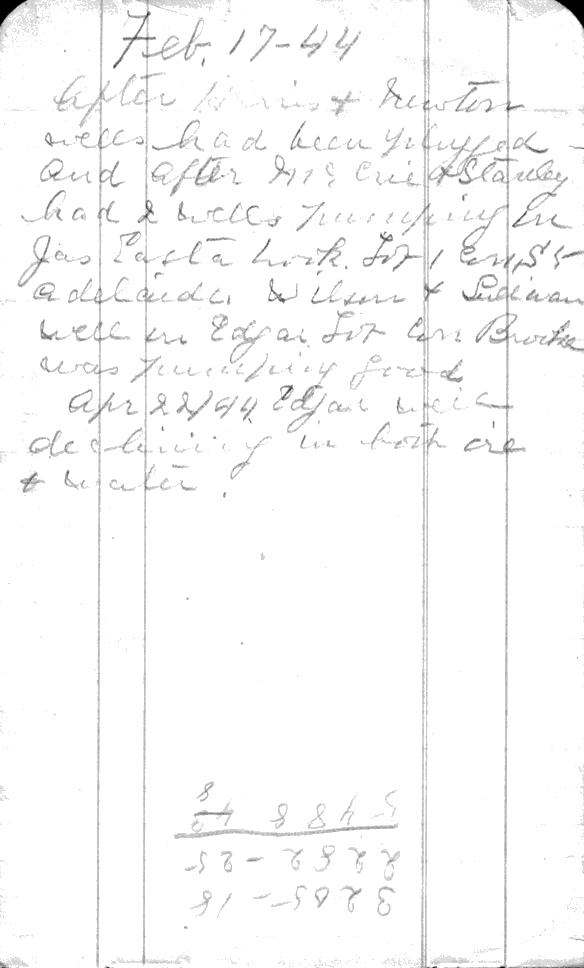 Feb. 17-44
After & Newton
wells had been plugged
and after Mc Crie & Stanley
had 2 wells pumping in
Jas Easta Lot 1 Con S5
Adelaide. Wilson & Sullivan
well in Edgar Lot Con Brooke
was pumping good
Apr 22/44 Edgar well
declining in both oil
& water.
3205-18
2282-25
5488